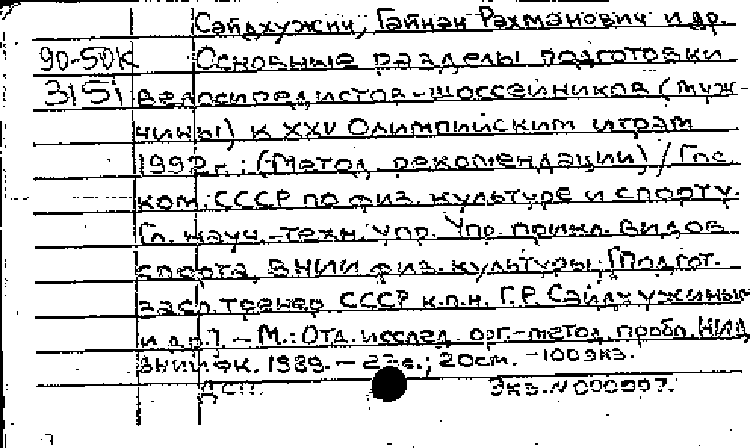 Сайдхужин, Гайнан Рахманович и др.
90-50К Основные разделы подготовки
3151 велосипедистов-шоссейников (муж-
чины) к XXV Олимпийским играм
1992 г.: (Метод. рекомендации) / Гос.
ком. СССР по физ. культуре и спорту.
Гл. науч.-техн. упр. Упр. прикл. видов
спорта, ВНИИ физ. культуры; [Подгот.
засл. тренер СССР к.п.н. Г.Р. Сайдхужиным
и др.]. - М.: Отд. исслед. орг.-метод. пробл. НИД
ВНИИФК. 1989. - с.; 20 см. - 100 экз.
ДСП. Экз. N 000097.